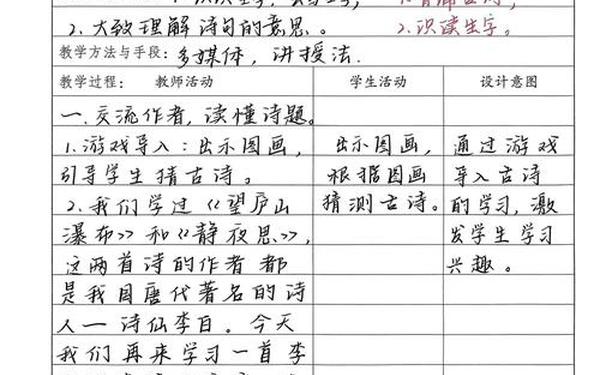 2.大致理解诗句的意思。。 2.识读生字。
教学方法与手段:多媒体,讲授法.
教学过程: 教师活动 学生活动 设计意图
一.交流作者,读懂诗题。
1.游戏导入:出示图画, 出示图画, 通过游戏
引导学生猜古诗。 根据图画 导入古诗
2.我们学过《望庐山 猜测古诗。 的学习,激
瀑布》和《静夜思》, 发学生学习
这两首诗的作者都 兴趣。
是我国唐代著名的诗
人一诗仙李白。今天
我们再来学习一首李